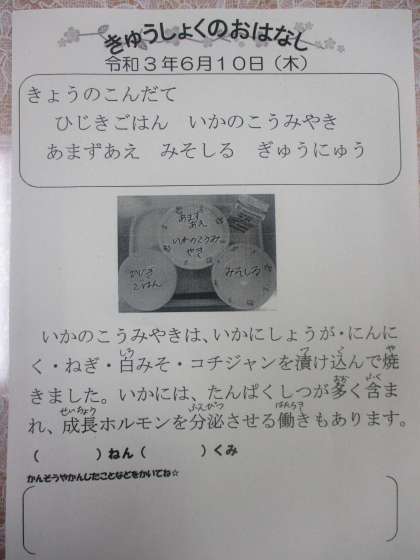 きゅうしょくのおはなし
令和3年6月10日（木）
きょうのこんだて
ひじきごはん　いかのこうみやき
あまずあえ　みそしる　ぎゅうにゅう
あまず
あえ
いかのこうみ
やき
ひじき
ごはん
みそしる
いかのこうみやきは、いかにしょうが・にんに
く・ねぎ・白みそ・コチジャンを漬け込んで焼
きました。いかには、たんぱくしつが多く含ま
れ、成長ホルモンを分泌させる働きもあります。
（　　　）ねん（　　　）くみ
かんそうやかんじたことなどをかいてね☆